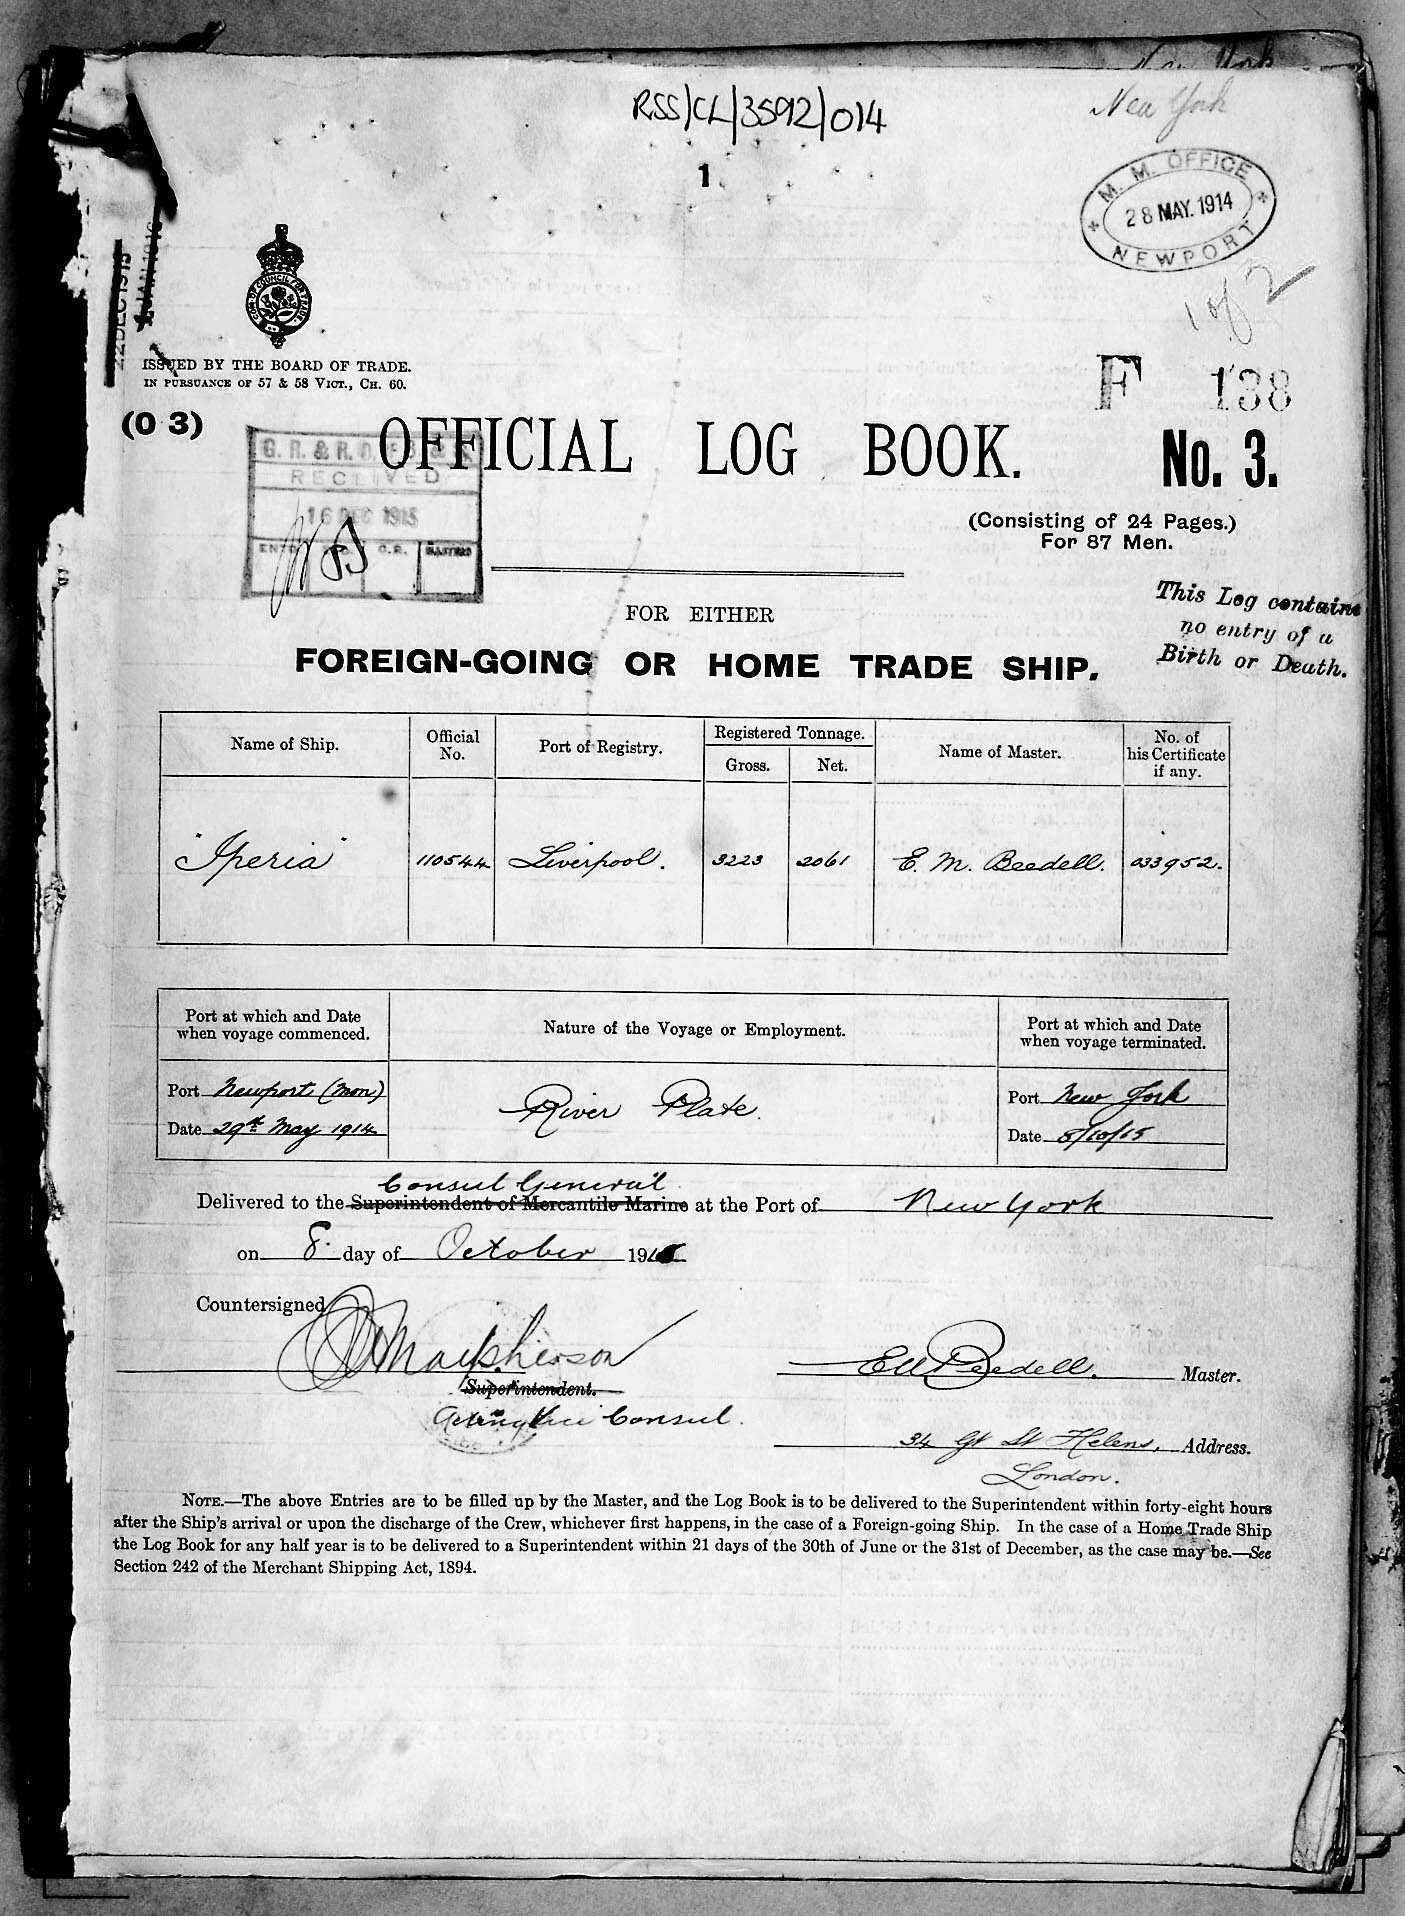 New York
RSS/CL/3592/014
New York
1
M. M. OFFICE
28 MAY. 1914
NEWPORT
1 of 2
22 DEC 1915
JAN 1916
ISSUED BY THE BOARD OF TRADE.
IN PURSUANCE OF 57 & 58 VICT., CH. 60.
F 138
(O 3)
OFFICIAL LOG BOOK.
No. 3.
G. R. & R.
RECEIVED
16 DEC 1915
C.R. MASTERS
(Consisting of 24 Pages.)
For 87 Men.
FOR EITHER
This Log contains
no entry of a
Birth or Death.
FOREIGN-GOING OR HOME TRADE SHIP.
Name of Ship. Official No. Port of Registry. Registered Tonnage. Gross. Net. Name of Master. No. of his Certificate if any.
"Iperia" 110544 Liverpool. 3223 2061 E. M. Beedell. 033952.
Port at which and Date when voyage commenced. Nature of the Voyage or Employment. Port at which and Date when voyage terminated.
Port Newport (Mon) River Plate. Port New York
Date 29th May 1914 Date 5/10/15
Consul General
Delivered to the Superintendent of Mercantile Marine at the Port of New York
on 8. day of October 1915
Countersigned
Macpherson
E M Beedell. Master.
Superintendent.
Acting Vice Consul.
34 Gt St Helens, Address.
London.
NOTE.—The above Entries are to be filled up by the Master, and the Log Book is to be delivered to the Superintendent within forty-eight hours
after the Ship's arrival or upon the discharge of the Crew, whichever first happens, in the case of a Foreign-going Ship. In the case of a Home Trade Ship
the Log Book for any half year is to be delivered to a Superintendent within 21 days of the 30th of June or the 31st of December, as the case may be.—See
Section 242 of the Merchant Shipping Act, 1894.